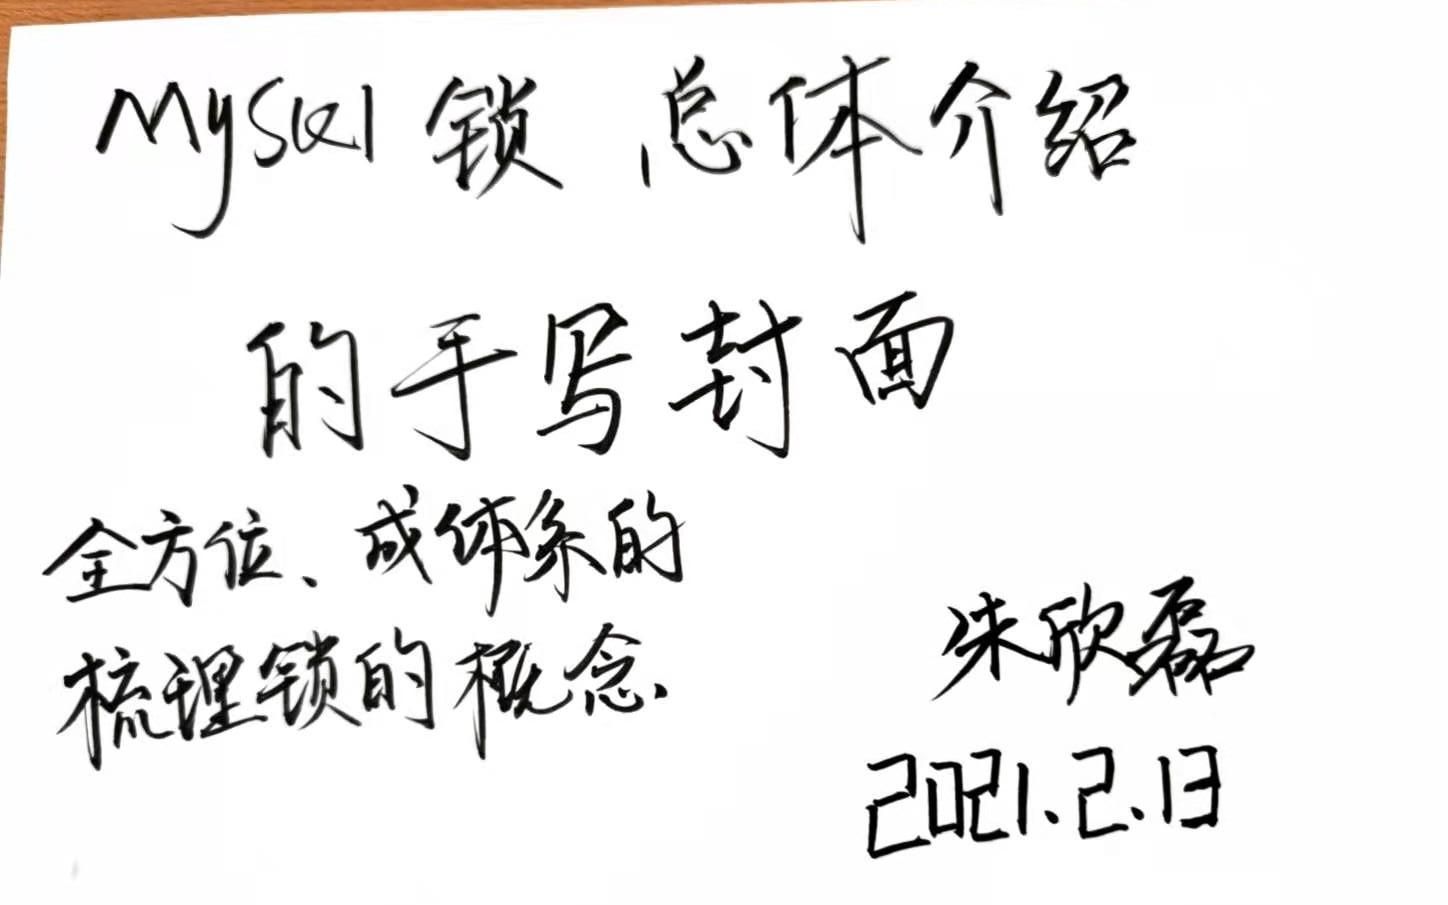 MySQl 锁 总体介绍
的手写封面
全方位、成体系的
梳理锁的概念.
朱欣磊
2021.2.13